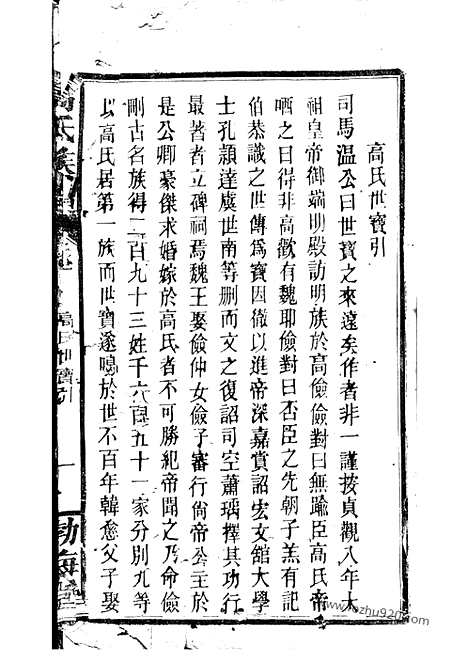 高氏世寶引
司馬温公曰世寶之來遠矣作者非一謹按貞觀八年太
祖皇帝御端明殿訪明族於高儉儉對曰無踰臣高氏帝
哂之曰得非高歡有魏耶儉對曰否臣之先朝子羔有記
伯恭識之世傳爲寶因徹以進帝深嘉賞詔宏文館大學
士孔頴達虞世南等删而文之復詔司空蕭瑀擇其功行
最著者立碑祠焉魏王娶儉仲女儉子審行尙帝公主於
是公卿豪傑求婚嫁於高氏者不可勝紀帝聞之乃命儉
刪古名族得二百九十三姓千六百五十一家分別九等
以高氏居第一族而世寶遂鳴於世不百年韓愈父子娶
高氏族譜
高氏世寶引
一
勃海堂
www.kfzhu920.com